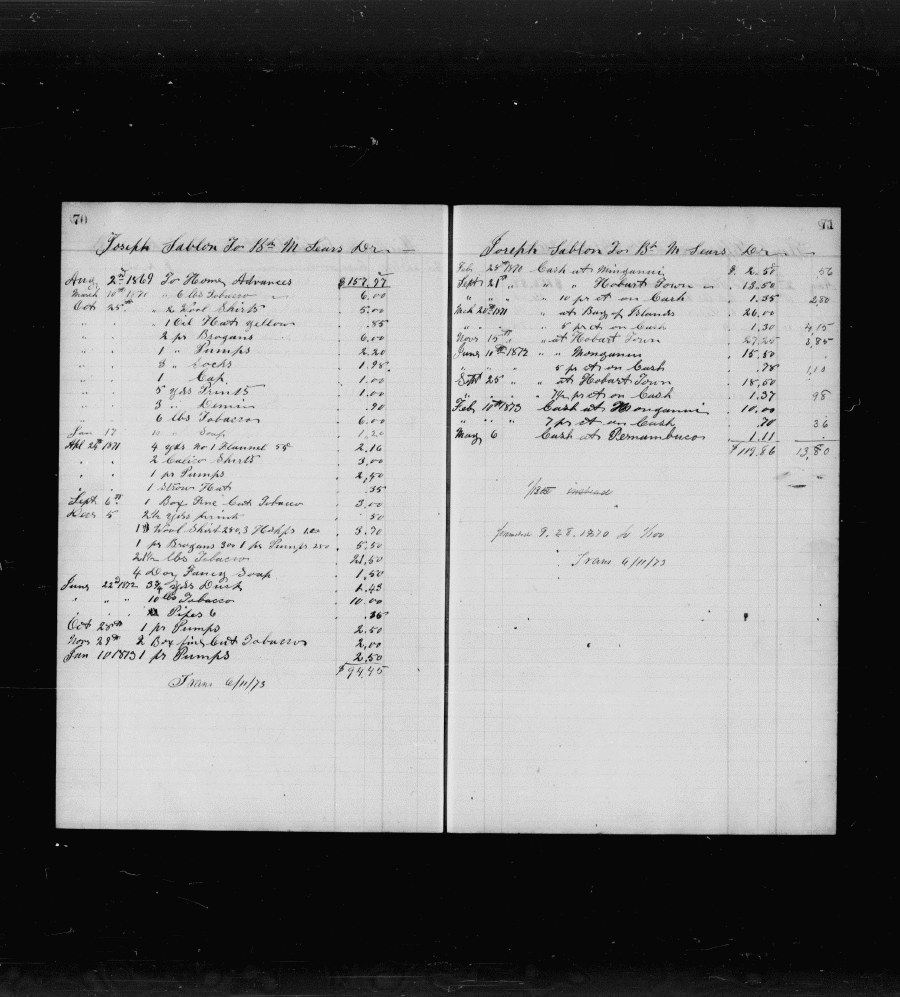 70
Joseph Sablon To Bk M Sears Dr
Aug 2nd 1869 To Home Advances $157.97
March 10th 1871 " 6 lbs Tobacco 6.00
Oct 25th " 2 Wool Shirts 5.00
" " " 1 Oil Hat yellow .85
" " 2 pr Brogans 6.00
" " 1 " Pumps 2.20
" " 3 " Socks 1.98
" " 1 Cap. 1.00
" " 5 yds Prints 1.00
" " 3 " Denim .90
" " 6 lbs Tobacco 6.00
Jan 17 " " Soap 1.20
Apl 24th 1871 4 yds No 1 Flannel 54 2.16
" " 2 Calico Shirts 3.00
" " 1 pr Pumps 2.50
" " 1 Straw Hat .35
Sept 6th 1 Box Fine Cut Tobacco 3.00
Decr 5 2½ yds print 50
1 Wool Shirt 250, 3 Hdkfs 1.20 3.70
1 pr Brogans 300 1 pr Pumps 250 5.50
21½ lbs Tobacco 21.50
4 Doz Fancy Soap 1.50
June 22nd 1872 3¾ yds Duck 1.43
" " " 10 lbs Tobacco 10.00
" " " Pipes 6 .36
Oct 28th 1 pr Pumps 2.50
Novr 29th 2 Box fine Cut Tobacco 2.00
Jan 10 1873 1 pr Pumps 2.50
$94.45
Trans 6/11/73
71
Joseph Sablon To Bk M Sears Dr
Feb 25th 1870 Cash at Monganui $ 2.50 56
Sept 21st " " " Hobart Town 13.50
" " " 10 pr ct on Cash 1.35 2,80
Mch 20th 1871 " at Bay of Islands 26.00
" " " 5 pr ct on Cash 1.30 4,15
Novr 15th " at Hobart Town 27.25 3,85
June 10th 1872 " " Monganui 15.50
" " " 5 pr ct on Cash .78 1,10
Sept 25 " " at Hobart Town 18.50
" " " 7½ pr ct on Cash 1.37 98
Feb 10th 1873 Cash at Monganui 10.00
" " " 7 pr ct on Cash .70 36
May 6 Cash at Pernambuco 1.11
$119.86 13,80
instead
Trans 6/11/73